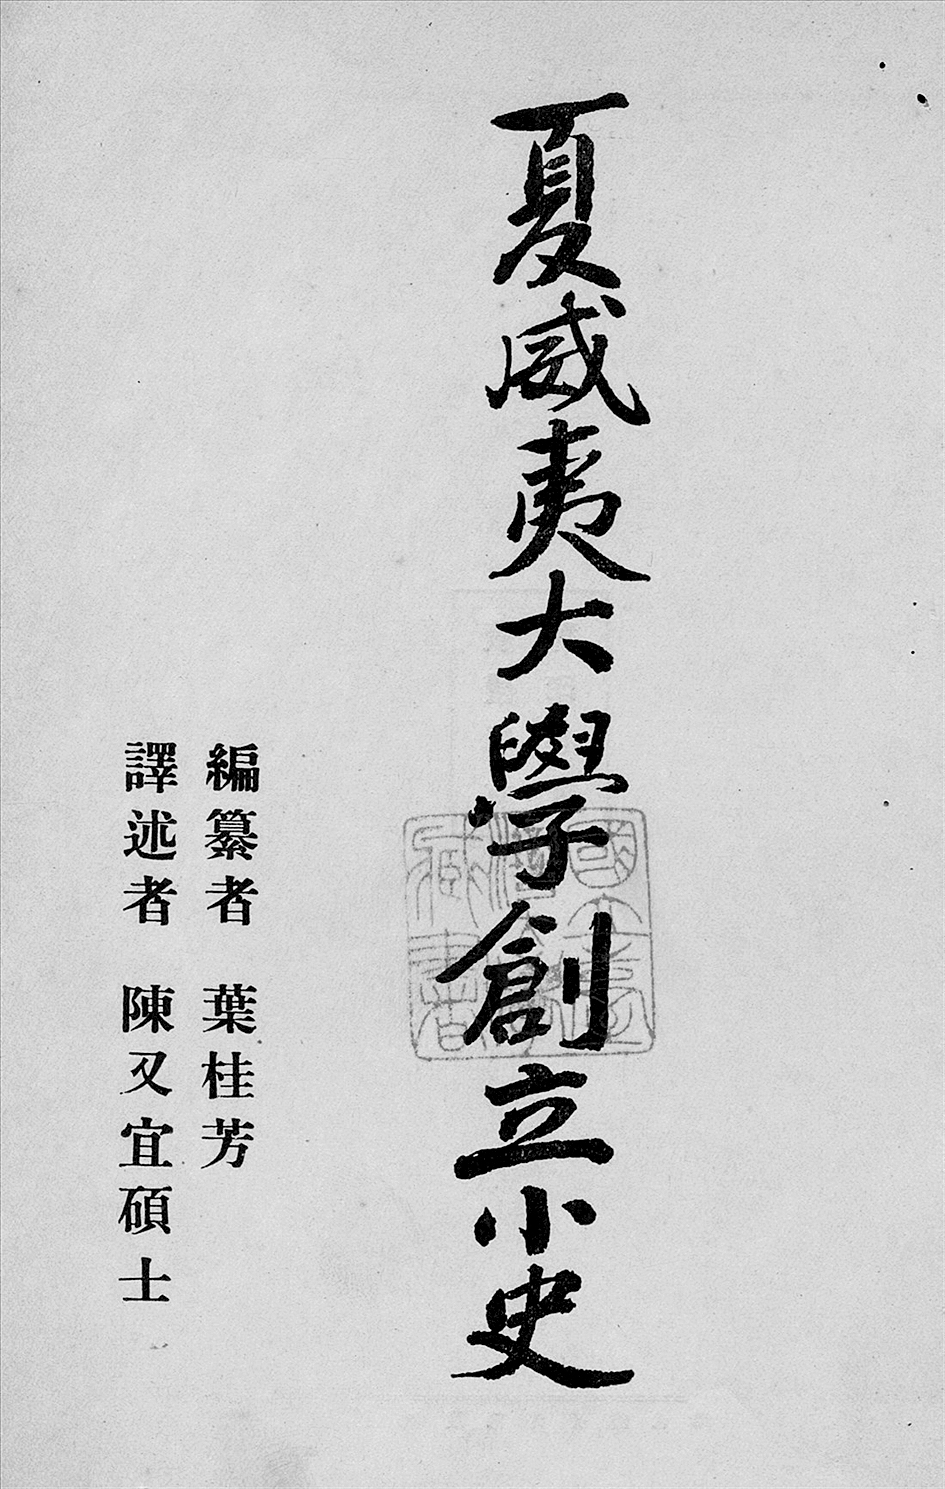 夏威夷大學創立小史
編纂者　葉桂芳
譯述者　陳又宜碩士